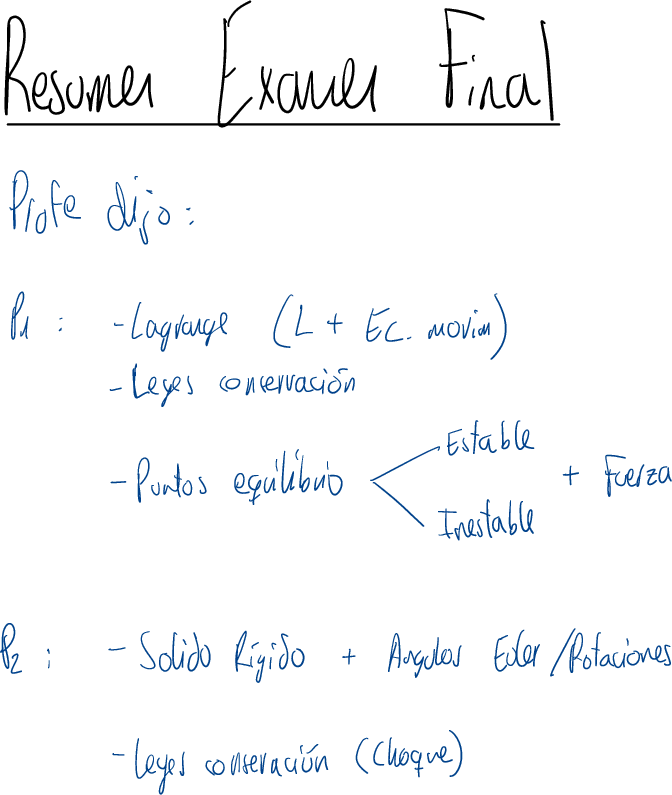 Resumen Examen Final
Profe dijo:
P1 : - Lagrange (L + Ec. movim)
- Leyes conservación
- Puntos equilibrio
Estable
Inestable
+ Fuerza
P2 : - Solido Rígido + Angulos Euler/Rotaciones
- Leyes conservación (Choque)